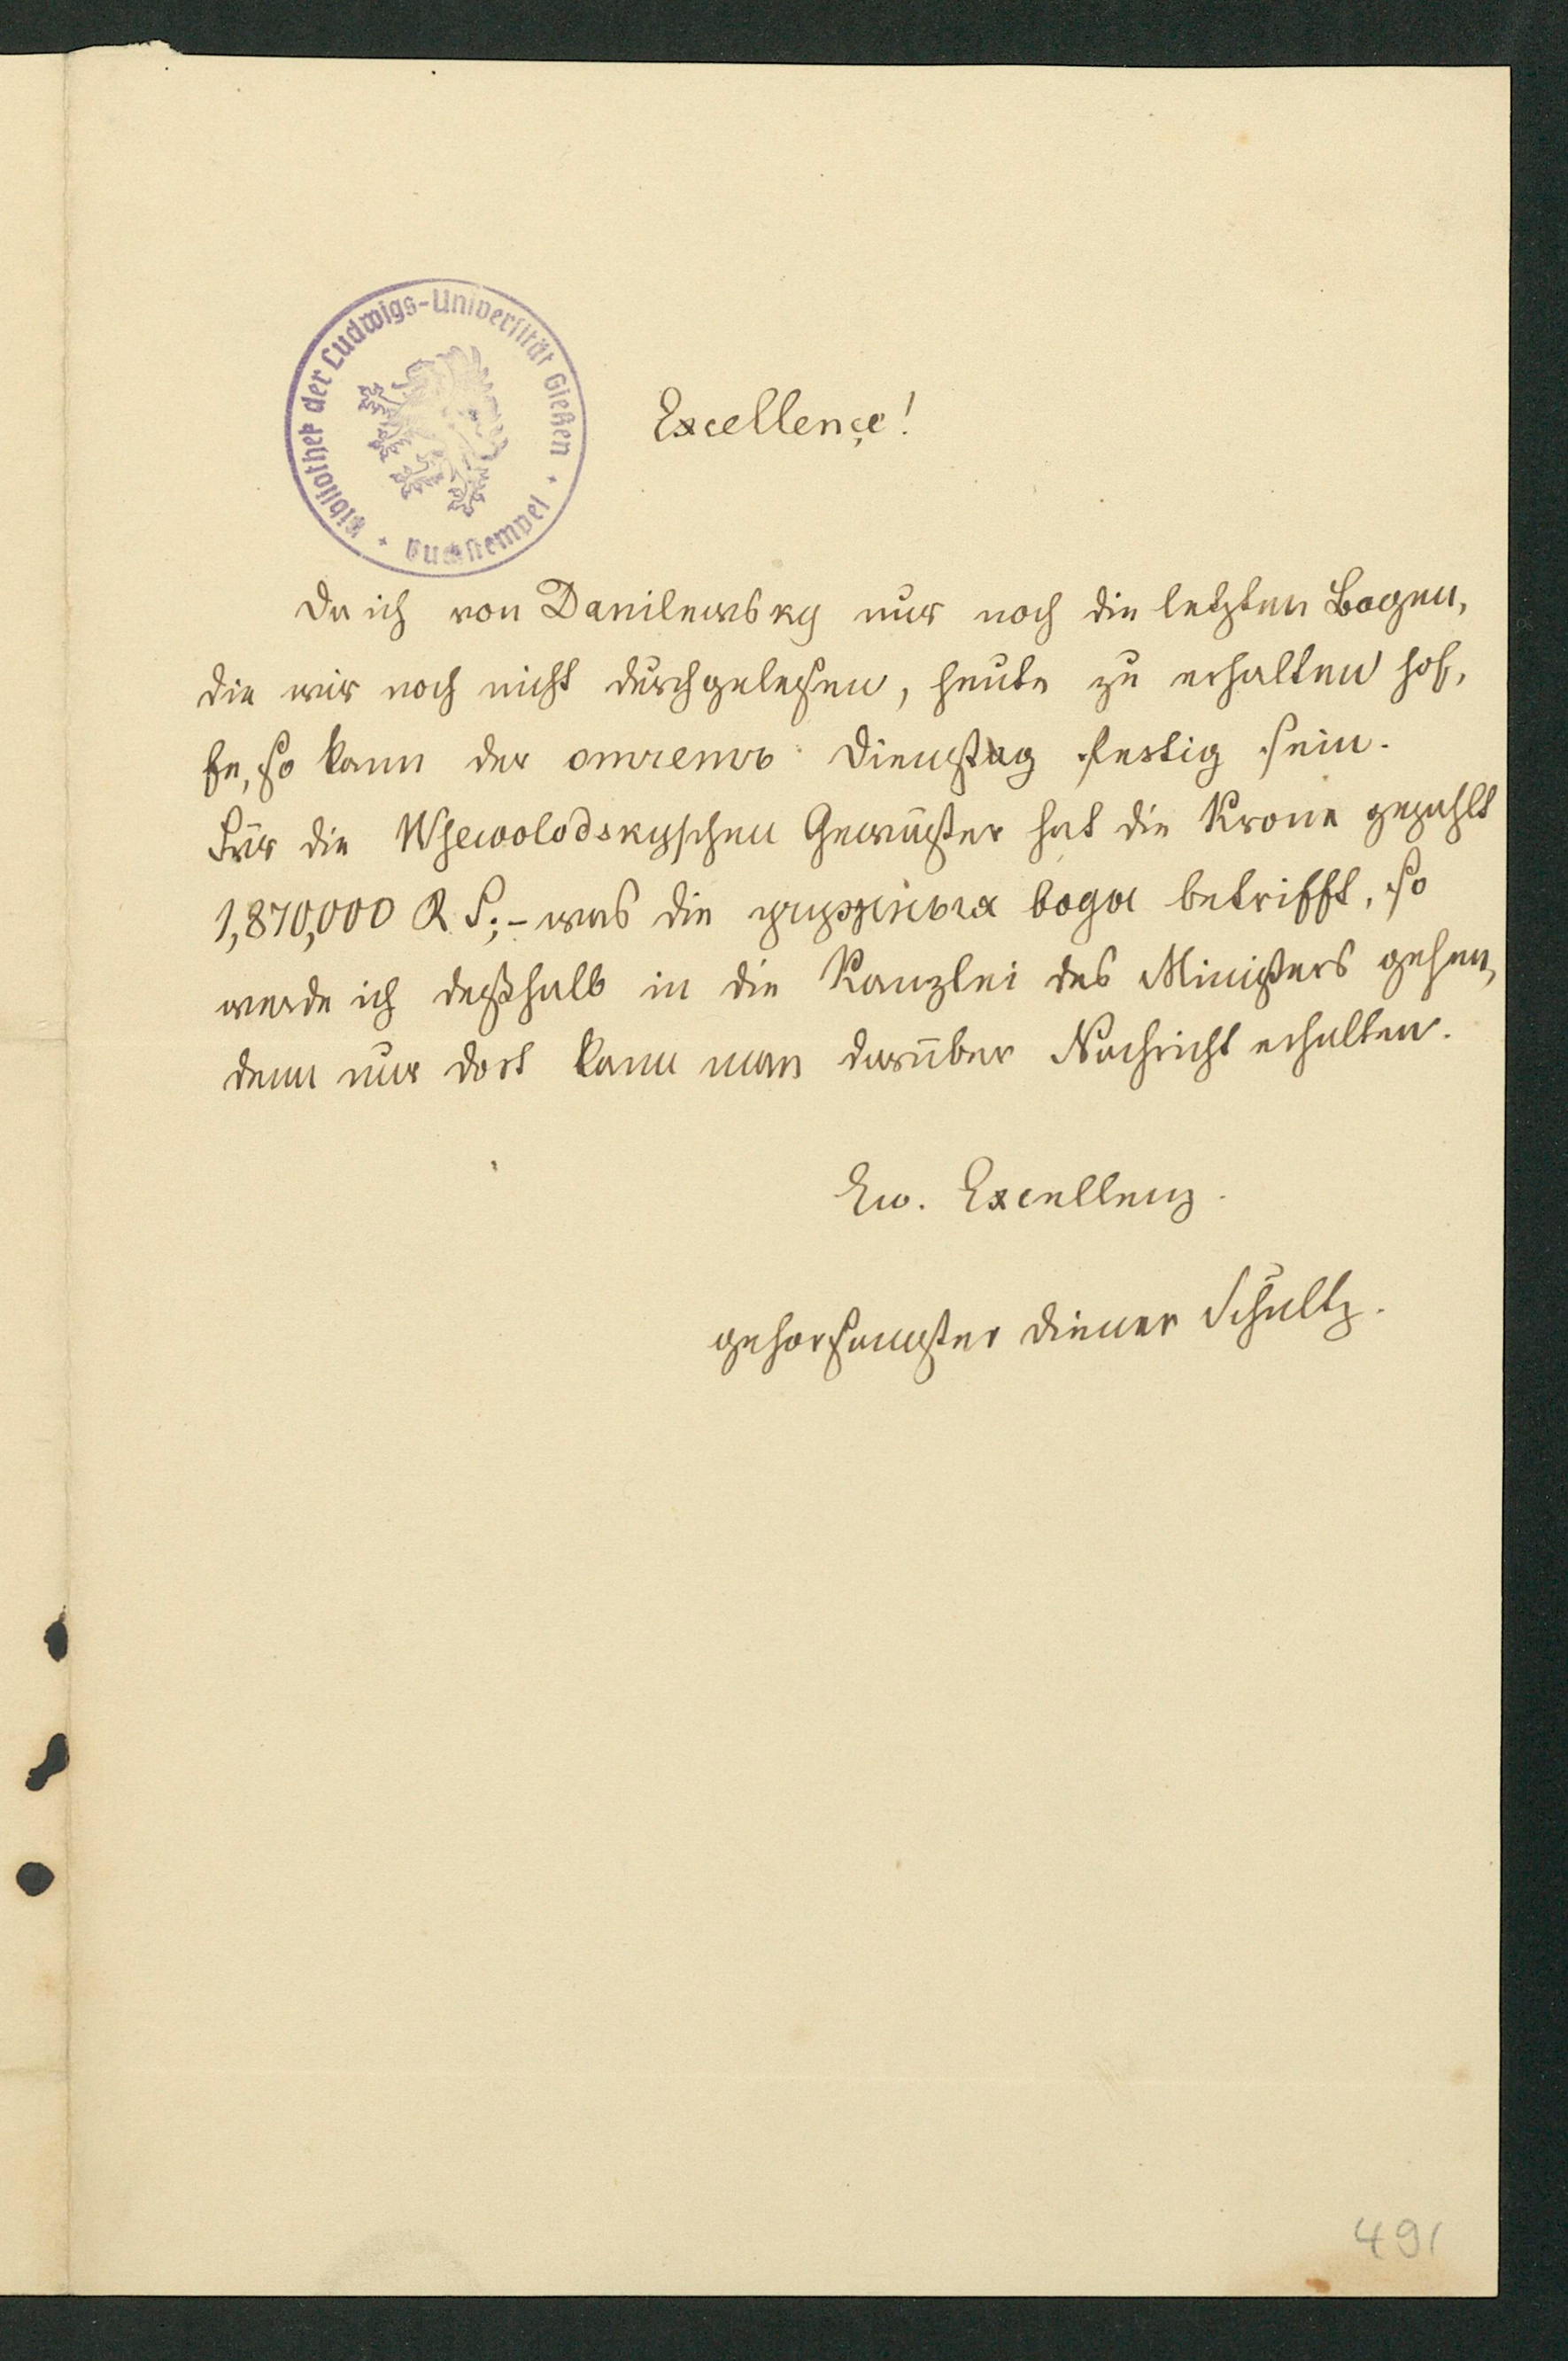 Bibliothek der Ludwigs-Universität Gießen
Buchstempel
Excellençe!
Da ich von Danilewsky nur noch die letzten Bogen,
die wir noch nicht durchgelesen, heute zu erhalten hof,
fe, so kann der отчетъ Dienstag fertig sein.
Für die Wsewolodskyschen Gewässer hat die Krone gezahlt
1,870,000 R S; – was die воды betrifft, so
werde ich deßhalb in die Kanzlei des Ministers gehen,
denn nur dort kann man darüber Nachricht erhalten.
Ew. Excellenz.
gehorsamster Diener Schultz.
491